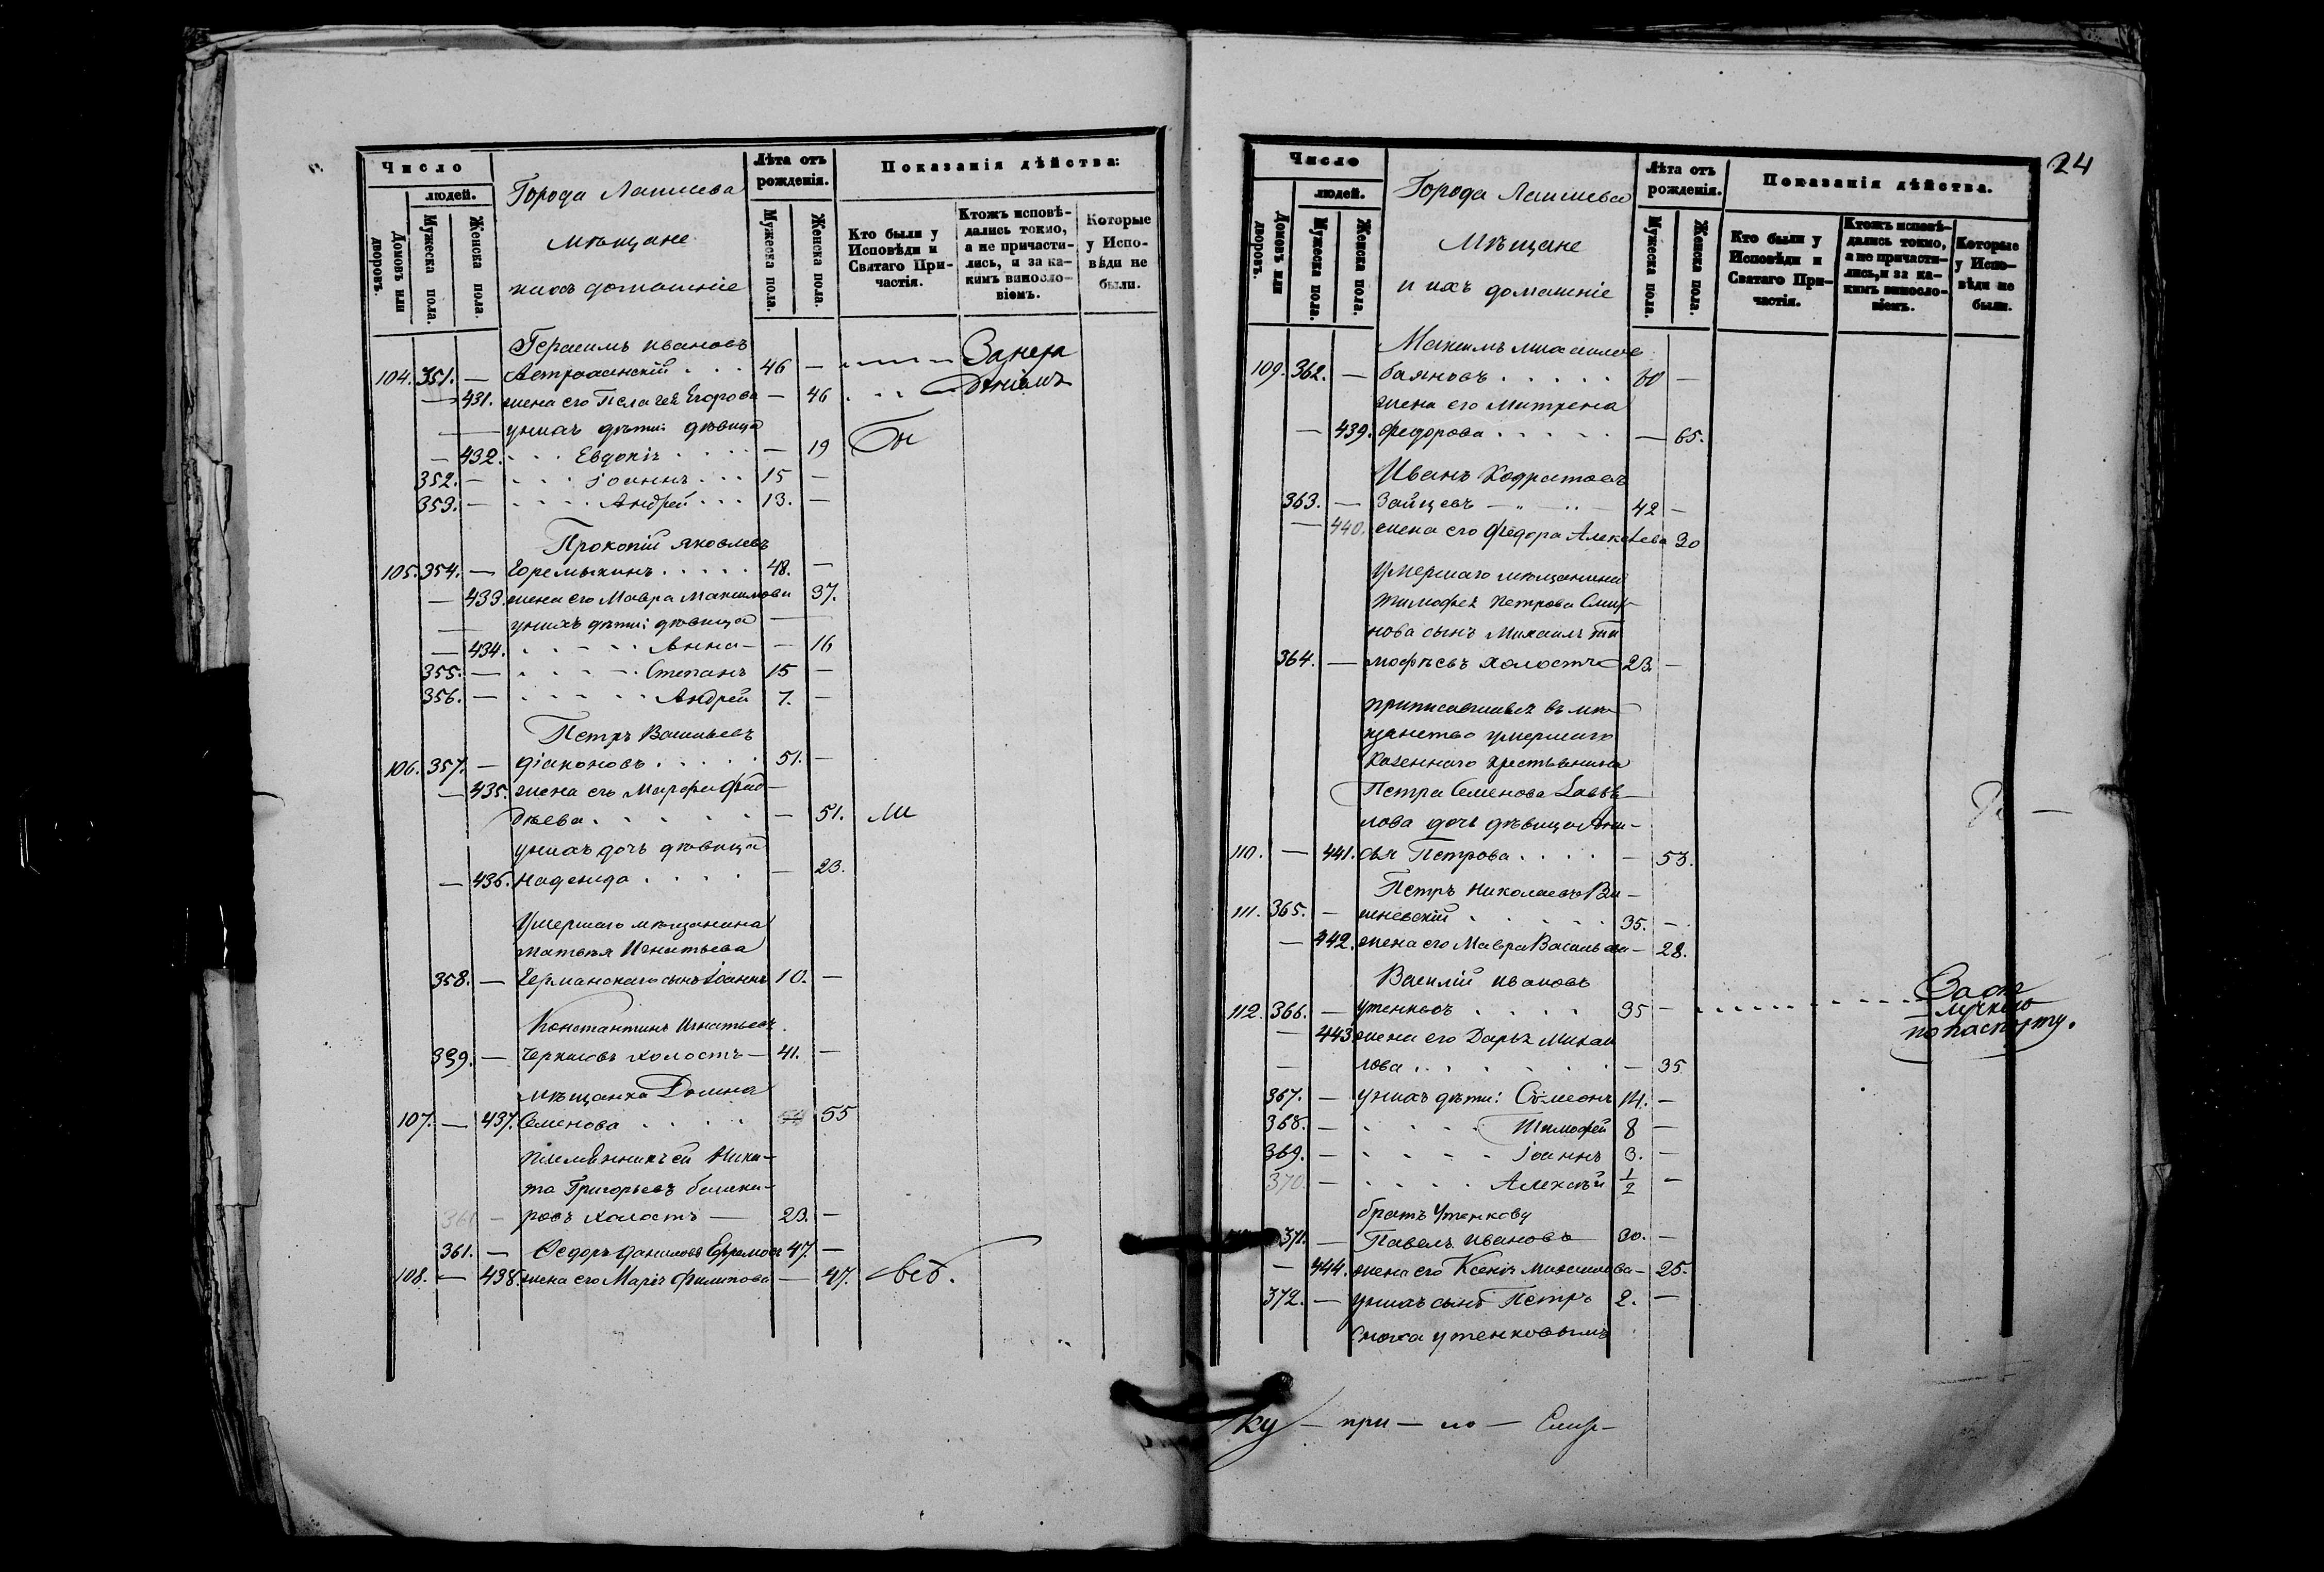 Число
людей.
Домовъ или дворовъ.
Мужеска пола.
Женска пола.
Города Лаишева
мѣщане
и ихъ домашніе
Лѣта отъ
рожденія.
Мужеска пола.
Женска пола.
Показанія дѣйства:
Кто были у
Исповѣди и
Святаго При-
частія.
Ктожъ исповѣ-
дались токмо,
а не причасти-
лись, и за ка-
кимъ винosло-
віемъ.
Которые
у Испо-
вѣди не
были.
Герасимъ Ивановъ
104. 351. — Астраханскій 46 —
— 431. жена его Пелагея Егорова — 46
у нихъ дѣти: дѣвица
— 432. Евдокія — 19
352. — Іоаннъ 15 —
353. — Андрей 13. —
Прокопій Яковлевъ
105. 354. — 48. —
— 433. жена его Мавра Максимова 37.
у нихъ дѣти: дѣвица
— 434. Анна — 16
355. — Степанъ 15 —
356. — Андрей 7. —
Петръ Васильевъ
106. 357. — Діаконовъ 51. —
— 435. жена его Марфа Фад-
дѣева — 51.
у нихъ дочь дѣвица
— 436. Надежда — 23.
Умершаго мѣщанина
Матвѣя Игнатьева
358. — сынъ Іоаннъ 10. —
Константинъ Игнатьевъ
359. — холостъ — 41. —
мѣщанка Домна
107. — 437. Семенова 55
племянникъ ей Ники-
та Григорьевъ башки-
ровъ холостъ — 23. —
361. — Ѳедоръ Даниловъ Ефремовъ 47. —
108. — 438. жена его Марія Филипова — 47.
24
Число
людей.
Домовъ или дворовъ.
Мужеска пола.
Женска пола.
Города Лаишева
Мѣщане
и ихъ домашніе
Лѣта отъ
рожденія.
Мужеска пола.
Женска пола.
Показанія дѣйства.
Кто были у
Исповѣди и
Святаго При-
частія.
Ктожъ исповѣ-
дались токмо,
а не причасти-
лись, и за ка-
кимъ виносло-
віемъ.
Которые
у Испо-
вѣди не
были.
Максимъ Михаилов
109. 362. — баяновъ 60 —
жена его Митрена
— 439. Федорова — 65.
Иванъ Кодратовъ
363. — Зайцевъ 42 —
— 440. жена его Федора Алексѣева 30
Умершаго мѣщанина
Тимофея Петрова Смир-
нова сынъ Михаилъ Ти
364. — мофѣевъ холостъ 23. —
приписавшаяся въ мѣ-
щанство умершаго
казеннаго крестьянина
Петра Семенова
лова дочь дѣвица
110. — 441. Петрова — 53.
Петръ Николаевъ Ви-
111. 365. — шневскій 35. —
— 442. жена его Мавра Васильева — 28.
Василій Ивановъ
112. 366. — Утенковъ 35 —
по паспорту.
— 443. жена его Дарья Михаи
— лова — 35
367. — у нихъ дѣти: Сѵмеонъ 14. —
368. — Тимофей 8 —
369. — Іоаннъ 3. —
370. — Алексѣй 1/2 —
братъ Утенкову
371. — Павелъ Ивановъ 30. —
— 444. жена его Ксенія Михаилова — 25.
372. — у нихъ сынъ Петръ 2. —
Сноха утенковымъ